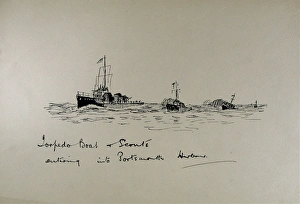 Torpedo Boat & Scouts
entering into Portsmouth Harbour